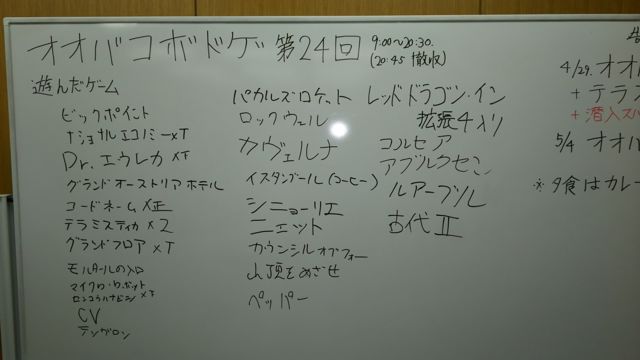 オオバコボドゲ 第24回
9:00〜20:30.
(20:45 撤収)
遊んだゲーム
ビックポイント
ナショナルエコノミー×T
Dr.エウレカ ×T
グランドオーストリアホテル
コードネーム ×正
テラミスティカ ×2
グランドフロア ×T
モルタールの入口
マイクロ・ロボット
CV
テングロン
パカルズ・ロケット
ロックウェル
カヴェルナ
イスタンブール(コーヒー)
シニョーリエ
ニエット
カウンシルオブフォー
山頂をめざせ
ペッパー
レッドドラゴン・イン
拡張4入り
コルセア
アブルクセン
ルアーブル
古代Ⅱ
4/29. オオ
+ テラ
+ 潜入ス
5/4 オオ
※ 夕食はカレー